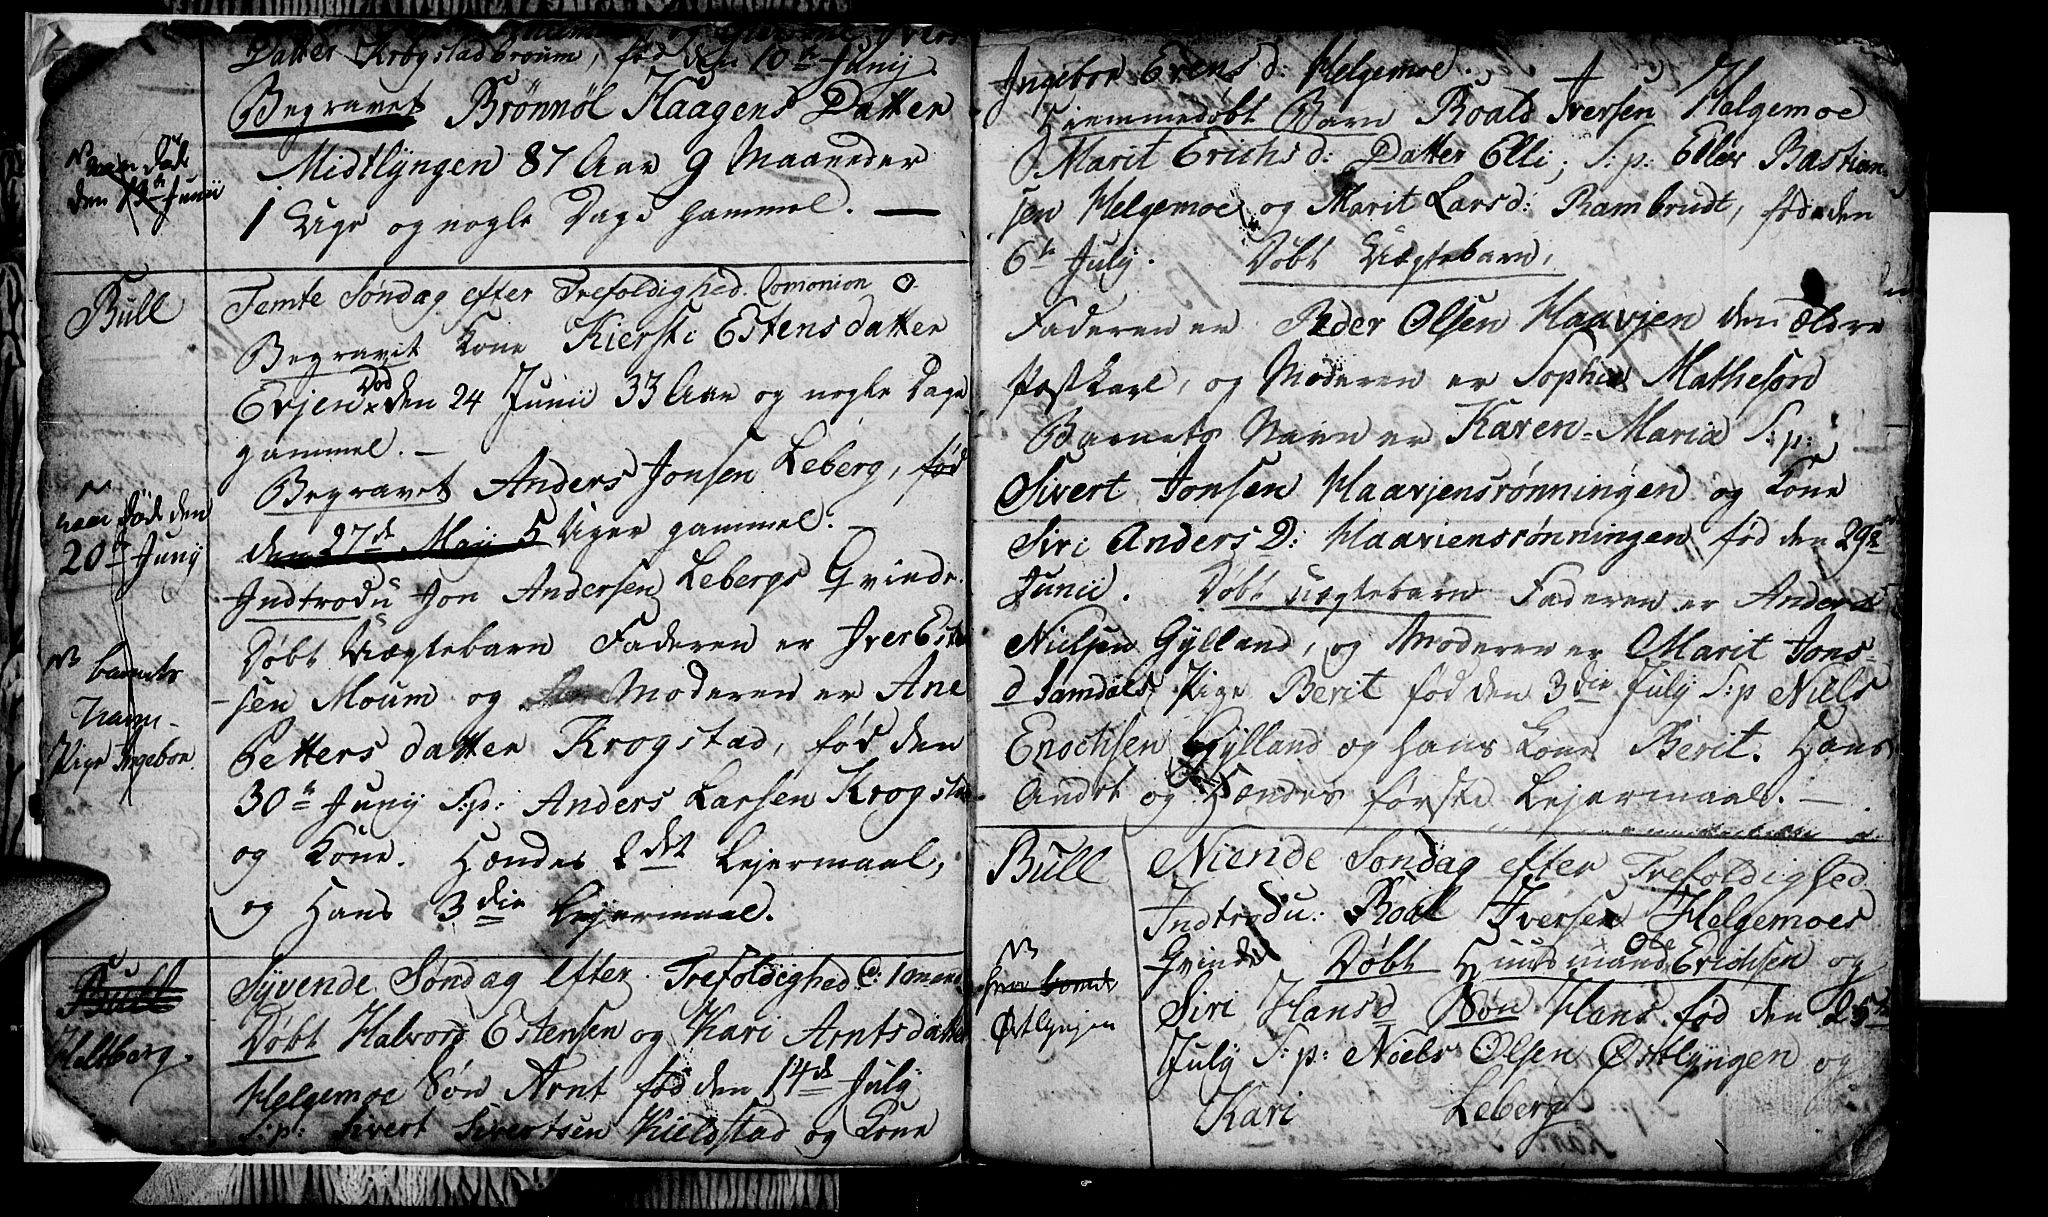 Datter Krogstadbroum, fød den 10de Junij
Begravet Brønnøl Haagens Datter
Midtlyngen 87 Aar 9 Maaneder
1 Uge og nogle Dage gammel. —
NB
død
den 19de Junii
Bull
Femte Søndag efter Trefoldighed. Comonion O.
Begravet Kone Kiersti Estensdatter
Evjen Død den 24 Junii 33 Aar og nogle Dage
gammel. —
Begravet Anders Jonsen Leberg, fød
den 27de Maij 5 Uger gammel. —
NB
døde den
20de Junij
Indtrodu Jon Andersen Lebergs Qvinde.
Døbt Uægtebarn Faderen er Iver Esten
-sen Moum og Moderen er Ane
Petters datter Krogstad, fød den
30te Junij S:p: Anders Larsen Krogstad
og Kone. Hændes 2det Lejermaal,
og Hans 3die Lejermaal.
NB
barnets
Navn
Pige Ingebor
Bull
Heltberg.
Syvende Søndag efter Trefoldighed
Døbt Halvord Estensen og Kari Arntsdatter
Helgemoe Søn Arnt fød den 14de July
S:p: Sivert Sivertsen Kieldstad og Kone
Ingebor Evensd: Helgemoe.
Hiemmedøbt Barn Roald Iversen Helgemoe
Marit Erichsd: Datter Elli; S:p: Ellev Bastian
sen Helgemoe og Marit Larsd: Rambrudt, fød den
6te July. Døbt Uægtebarn,
Faderen er Peder Olsen Haavjen den ældre
, og Moderen er Sophia Mathesøn
Barnets Navn er Karen-Maria S:p:
Sivert Jonsen Haavjensrønningen og Kone
Siri Anders D: Haaviensrønningen fød den 29de
Junii. Døbt Uægtebarn Faderen er Anders
Nielsen Gylland, og Moderen er Marit Jons-
d Samdals, Pige Berit fød den 3die July S:p Niels
Enochsen Gylland og hans Kone Berit. Hans
Andet og Hændes første Lejermaal. —
Bull
Niende Søndag efter Trefoldighed
Indtrodu: Roal Iversen Helgemoes
Qvinde Døbt Huusmand Ole Erichsen og
Siri Hansd Søn Hans fød den 25de
July S:p: Niels Olsen Østlyngen og
Kari Leberg
NB
Østlyngen